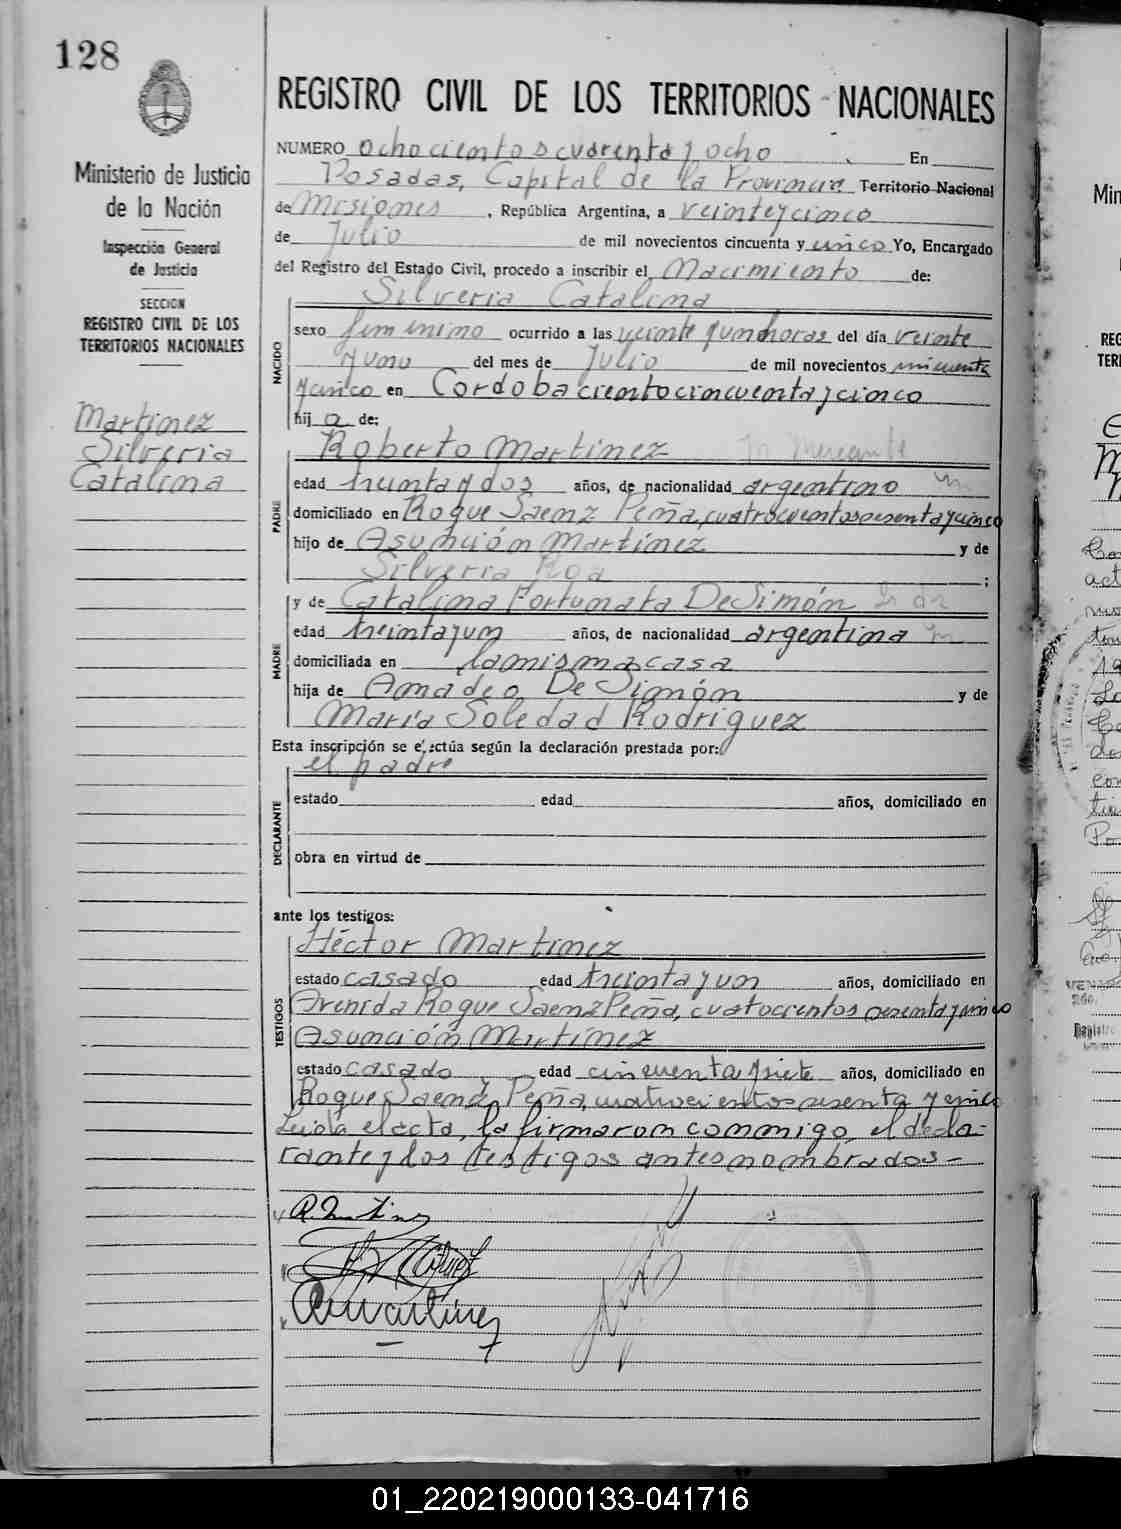 128
Ministerio de Justicia
de la Nación
Inspección General
de Justicia
SECCION
REGISTRO CIVIL DE LOS
TERRITORIOS NACIONALES
Martinez
Silveria
Catalina
REGISTRO CIVIL DE LOS TERRITORIOS NACIONALES
NUMERO ochocientos cuarenta y ocho En
Posadas, Capital de la Provincia Territorio Nacional
de Misiones, República Argentina, a veinteycinco
de Julio de mil novecientos cincuenta y cinco Yo, Encargado
del Registro del Estado Civil, procedo a inscribir el Nacimiento de:
Silveria Catalina
NACIDO
sexo femenino ocurrido a las veinte y un horas del día veinte
y uno del mes de Julio de mil novecientos cincuenta
y cinco en Cordoba ciento cincuenta y cinco
hij a de:
PADRE
Roberto Martinez
edad treinta y dos años, de nacionalidad argentino
domiciliado en Roque Saenz Peña, cuatrocientos sesenta y cinco
hijo de Asunción Martínez y de
Silveria Roa ;
MADRE
y de Catalina Fortunata De Simón
edad treinta y un años, de nacionalidad argentina
domiciliada en la misma casa
hija de Amadeo De Simón y de
María Soledad Rodriguez
Esta inscripción se efectúa según la declaración prestada por:
el padre
DECLARANTE
estado edad años, domiciliado en
obra en virtud de
ante los testigos:
TESTIGOS
Héctor Martinez
estado casado edad treinta y un años, domiciliado en
Avenida Roque Saenz Peña, cuatocientos sesenta y cinco
Asunción Martinez
estado casado edad cincuenta y siete años, domiciliado en
Roque Saenz Peña, cuatrocientos sesenta y cinco
Leida el acta, la firmaron conmigo, el decla-
rante y los testigos antes nombrados-
R. Martinez
A Martinez
01_220219000133-041716